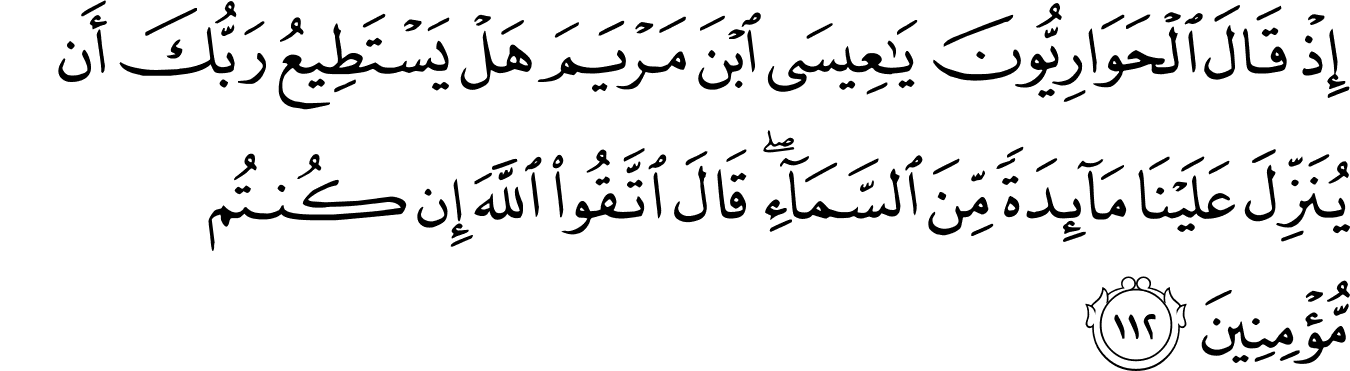 إِذۡ قَالَ ٱلۡحَوَارِيُّونَ يَٰعِيسَى ٱبۡنَ مَرۡيَمَ هَلۡ يَسۡتَطِيعُ رَبُّكَ أَن
يُنَزِّلَ عَلَيۡنَا مَآئِدَةٗ مِّنَ ٱلسَّمَآءِۖ قَالَ ٱتَّقُواْ ٱللَّهَ إِن كُنتُم
مُّؤۡمِنِينَ ١١٢